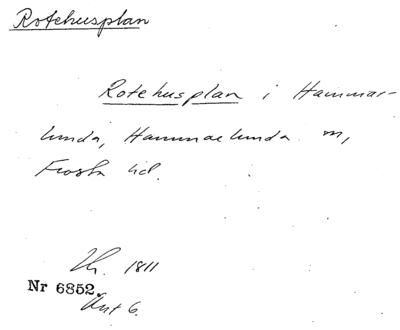 Rotehusplan
Rotehusplan i Hammar-
lunda, Hammarlunda sn,
Frosta hd.
Lh. 1811
Nr 6852.
Ant 6.